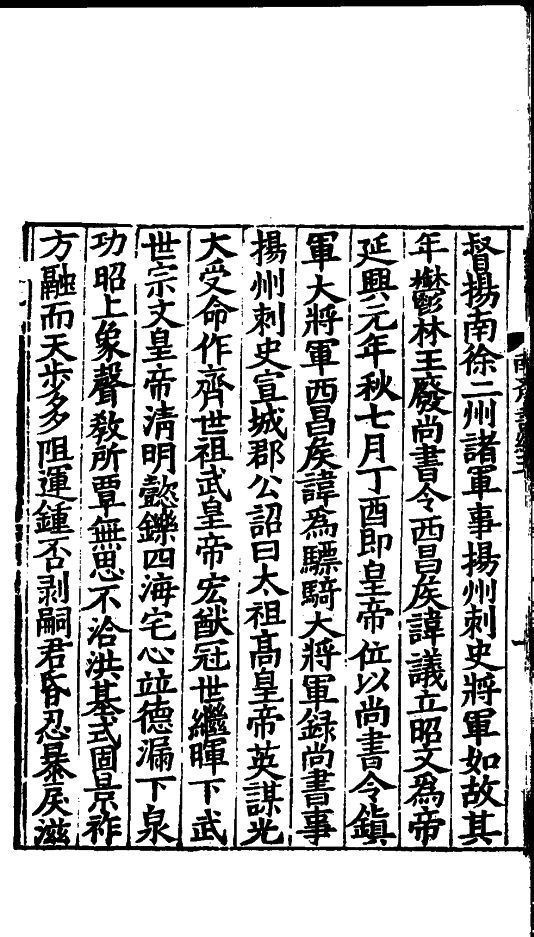 督揚南徐二州諸軍事揚州刺史將軍如故其
年鬱林王廢尚書令西昌矦諱議立昭文爲帝
延興元年秋七月丁酉即皇帝位以尚書令鎮
軍大將軍西昌矦諱爲驃騎大將軍録尚書事
揚州刺史宣城郡公詔曰太祖髙皇帝英謀光
大受命作齊世祖武皇帝宏猷冠世繼暉下武
世宗文皇帝清明懿鑠四海宅心竝德漏下泉
功昭上象聲敎所覃無思不洽洪基式固景祚
方融而天步多阻運鍾否剥嗣君昏忍暴戾滋